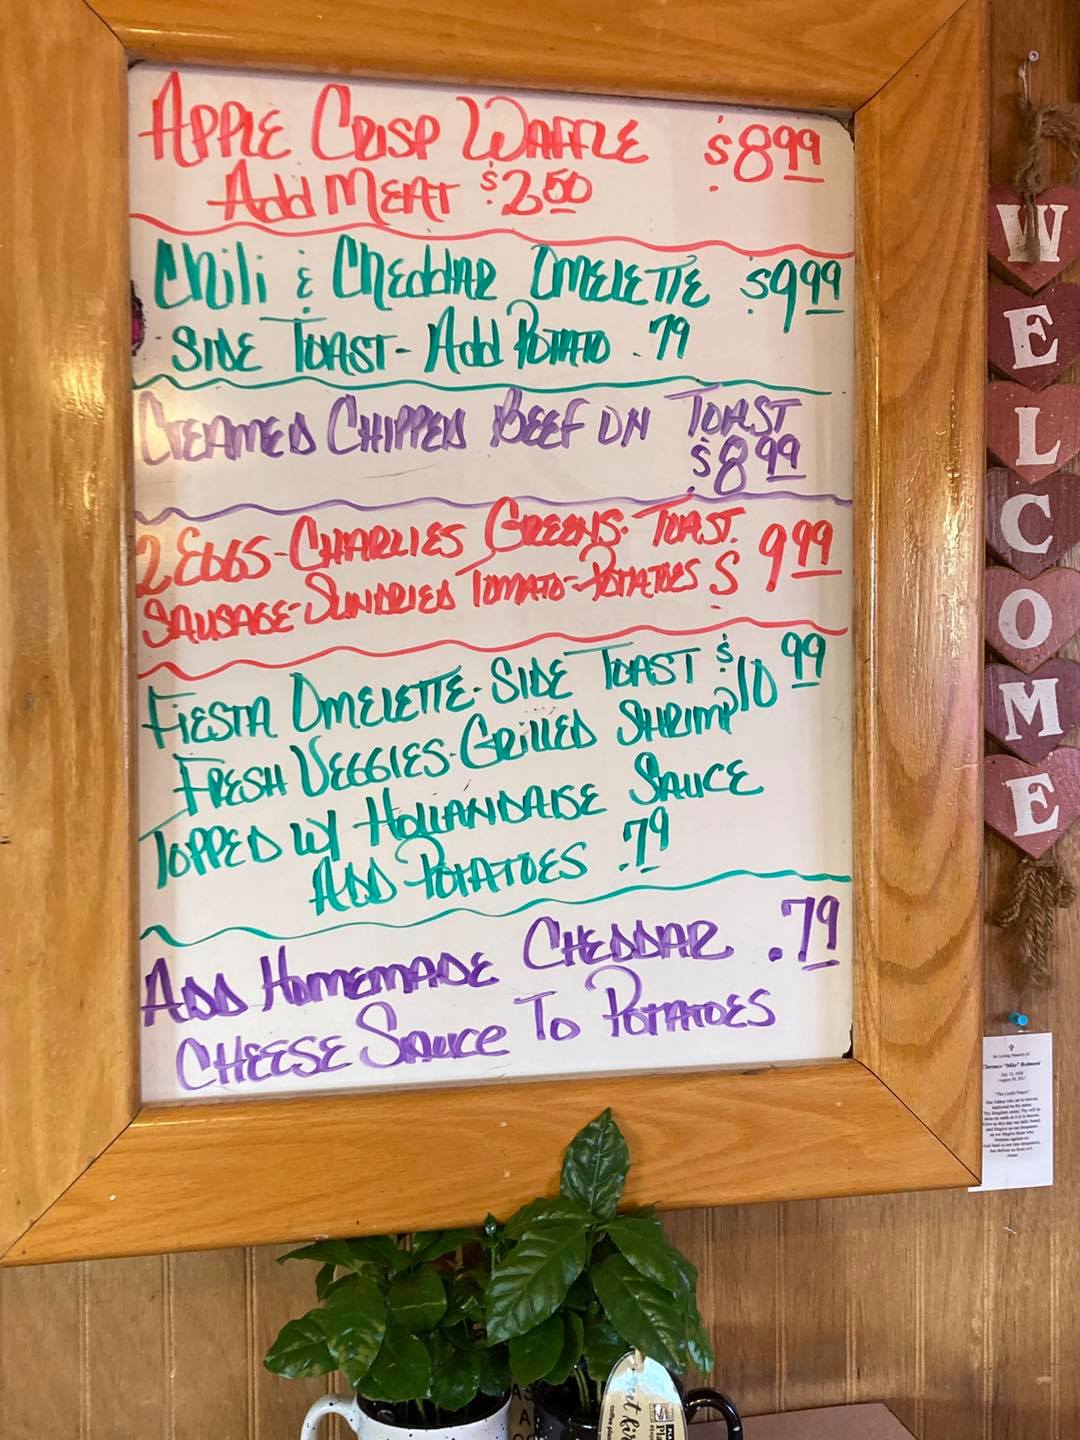 APPLE CRISP WAFFLE $8.99
Add MEAT $2.50
Chili & Cheddar OMELETTE $9.99
SIDE TOAST - Add POTATO .79
CREAMED CHIPPED BEEF ON TOAST
$8.99
2 EGGS - CHARLIES GREENS - TOAST.
SAUSAGE - SUNDRIED TOMATO - POTATOES $9.99
FIESTA OMELETTE - SIDE TOAST $10.99
FRESH VEGGIES - GRILLED SHRIMP
TOPPED W/ HOLLANDAISE SAUCE
ADD POTATOES .79
ADD HOMEMADE CHEDDAR .79
CHEESE SAUCE TO POTATOES
WELCOME
In Loving Memory of
"The Lord's Prayer"